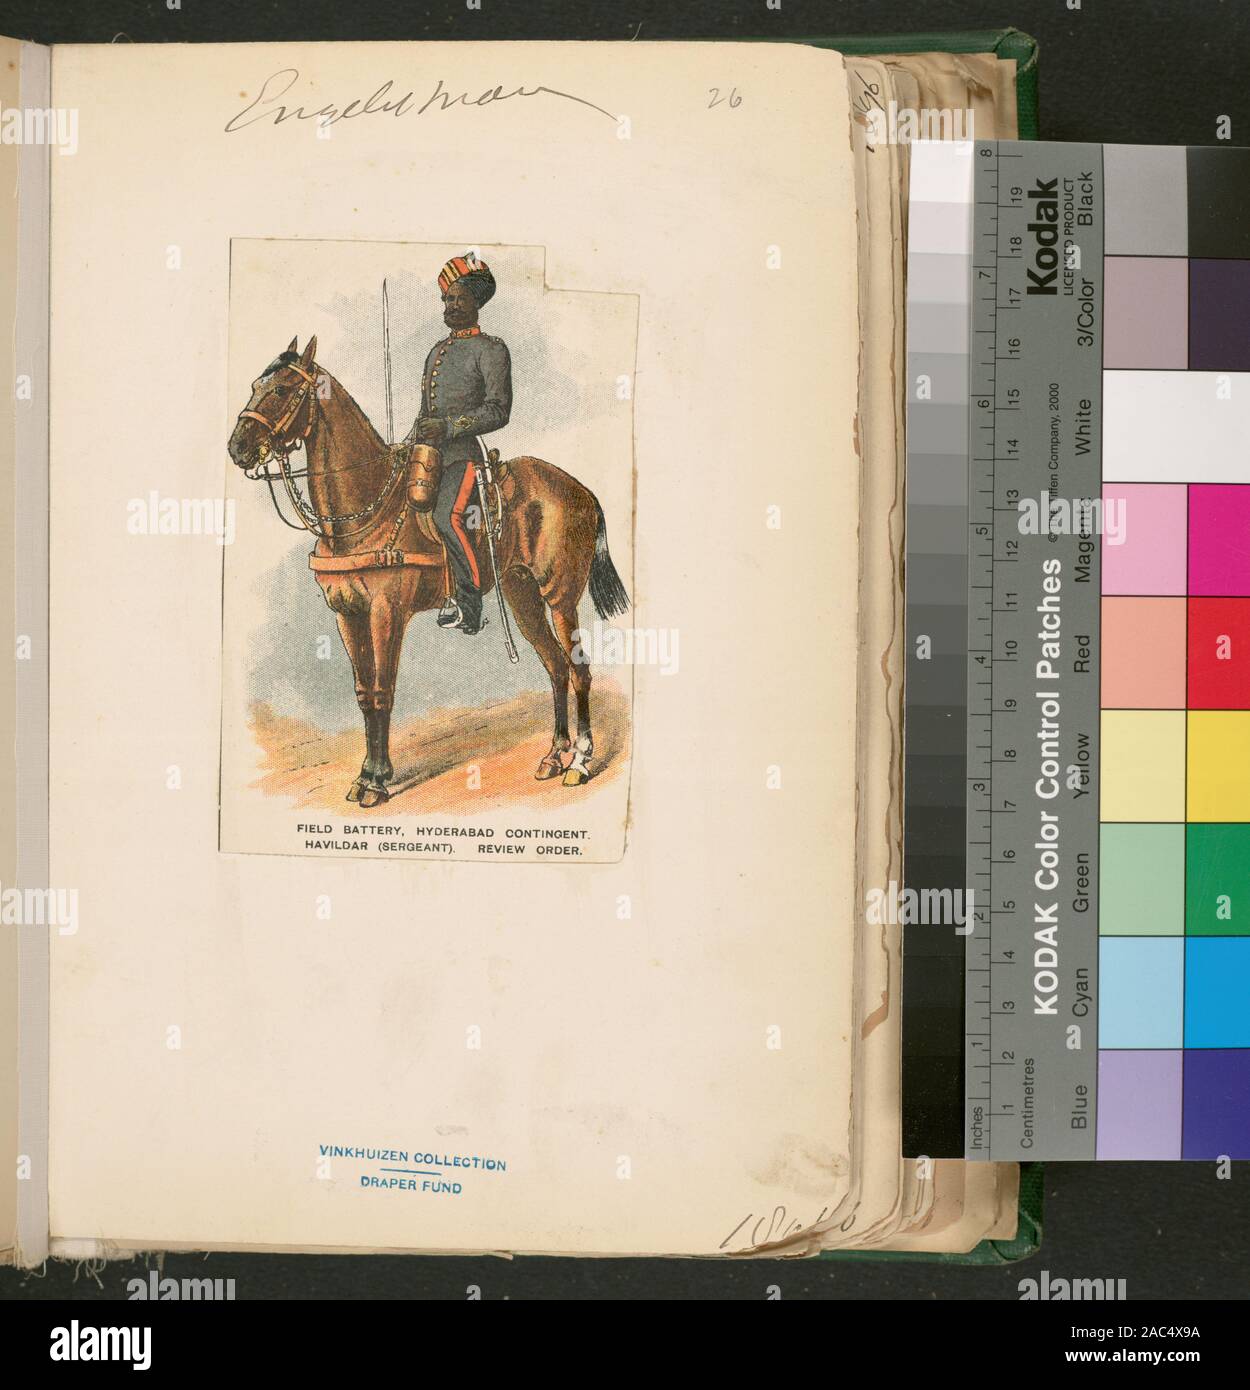 Engelsman
26
FIELD BATTERY, HYDERABAD CONTINGENT.
HAVILDAR (SERGEANT). REVIEW ORDER.
VINKHUIZEN COLLECTION
DRAPER FUND
Kodak
LICENSED PRODUCT
KODAK Color Control Patches
© The Tiffen Company, 2000
Blue Cyan Green Yellow Red Magenta White 3/Color Black
Inches 1 2 3 4 5 6 7 8
Centimetres 1 2 3 4 5 6 7 8 9 10 11 12 13 14 15 16 17 18 19
alamy
Image ID: 2AC4X9A
www.alamy.com